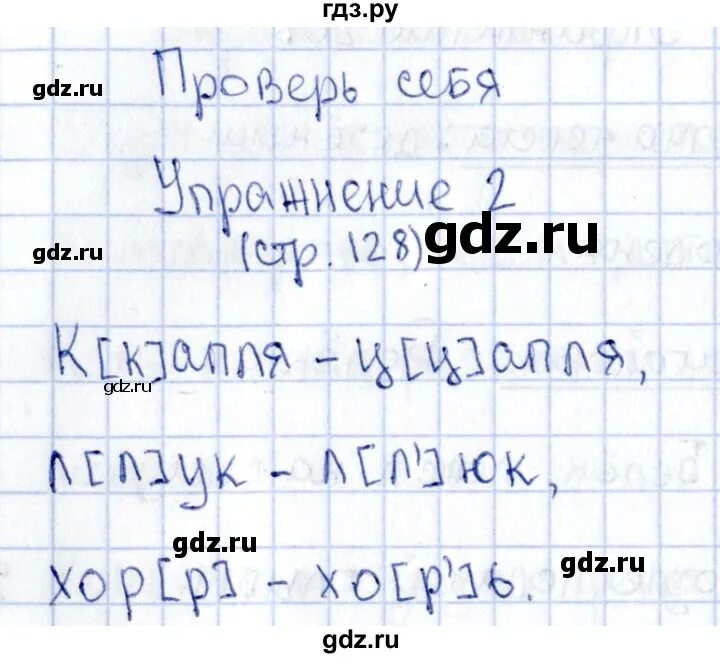 гдз.ру
Проверь себя
gdz.ru
Упражнение 2
gdz.ru
(стр. 128) gdz.ru
К[к]апля – ц[ц]апля,
gdz.ru
л[л]ук – л[л']юк,
gdz.ru
gdz.ru
хор[р] – хо[р']ь.
gdz.ru